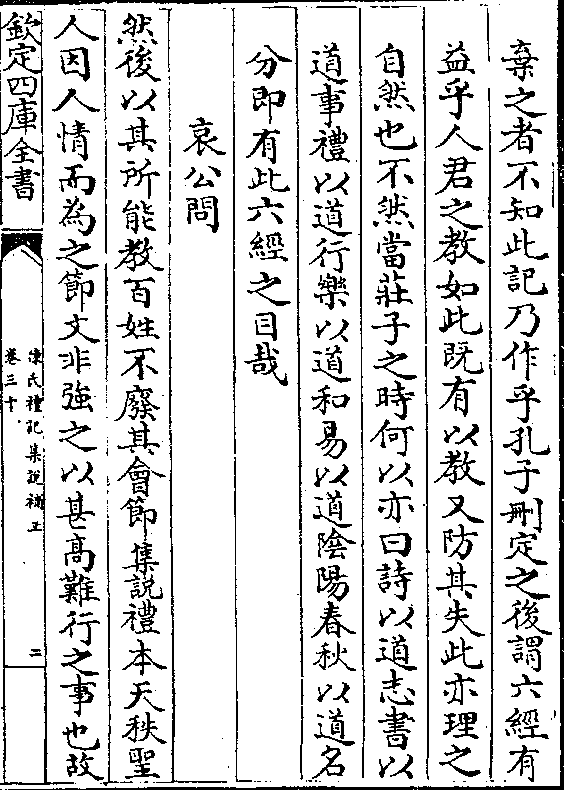 棄之者不知此記乃作乎孔子刪定之後謂六經有
益乎人君之教如此既有以教又防其失此亦理之
自然也不然當莊子之時何以亦曰詩以道志書以
道事禮以道行樂以道和易以道陰陽春秋以道名
分即有此六經之目哉
哀公問
然後以其所能教百姓不廢其會節集說禮本天秩聖
人因人情而為之節文非強之以甚高難行之事也故
欽定四庫全書
陳氏禮記集說補正
卷三十
二